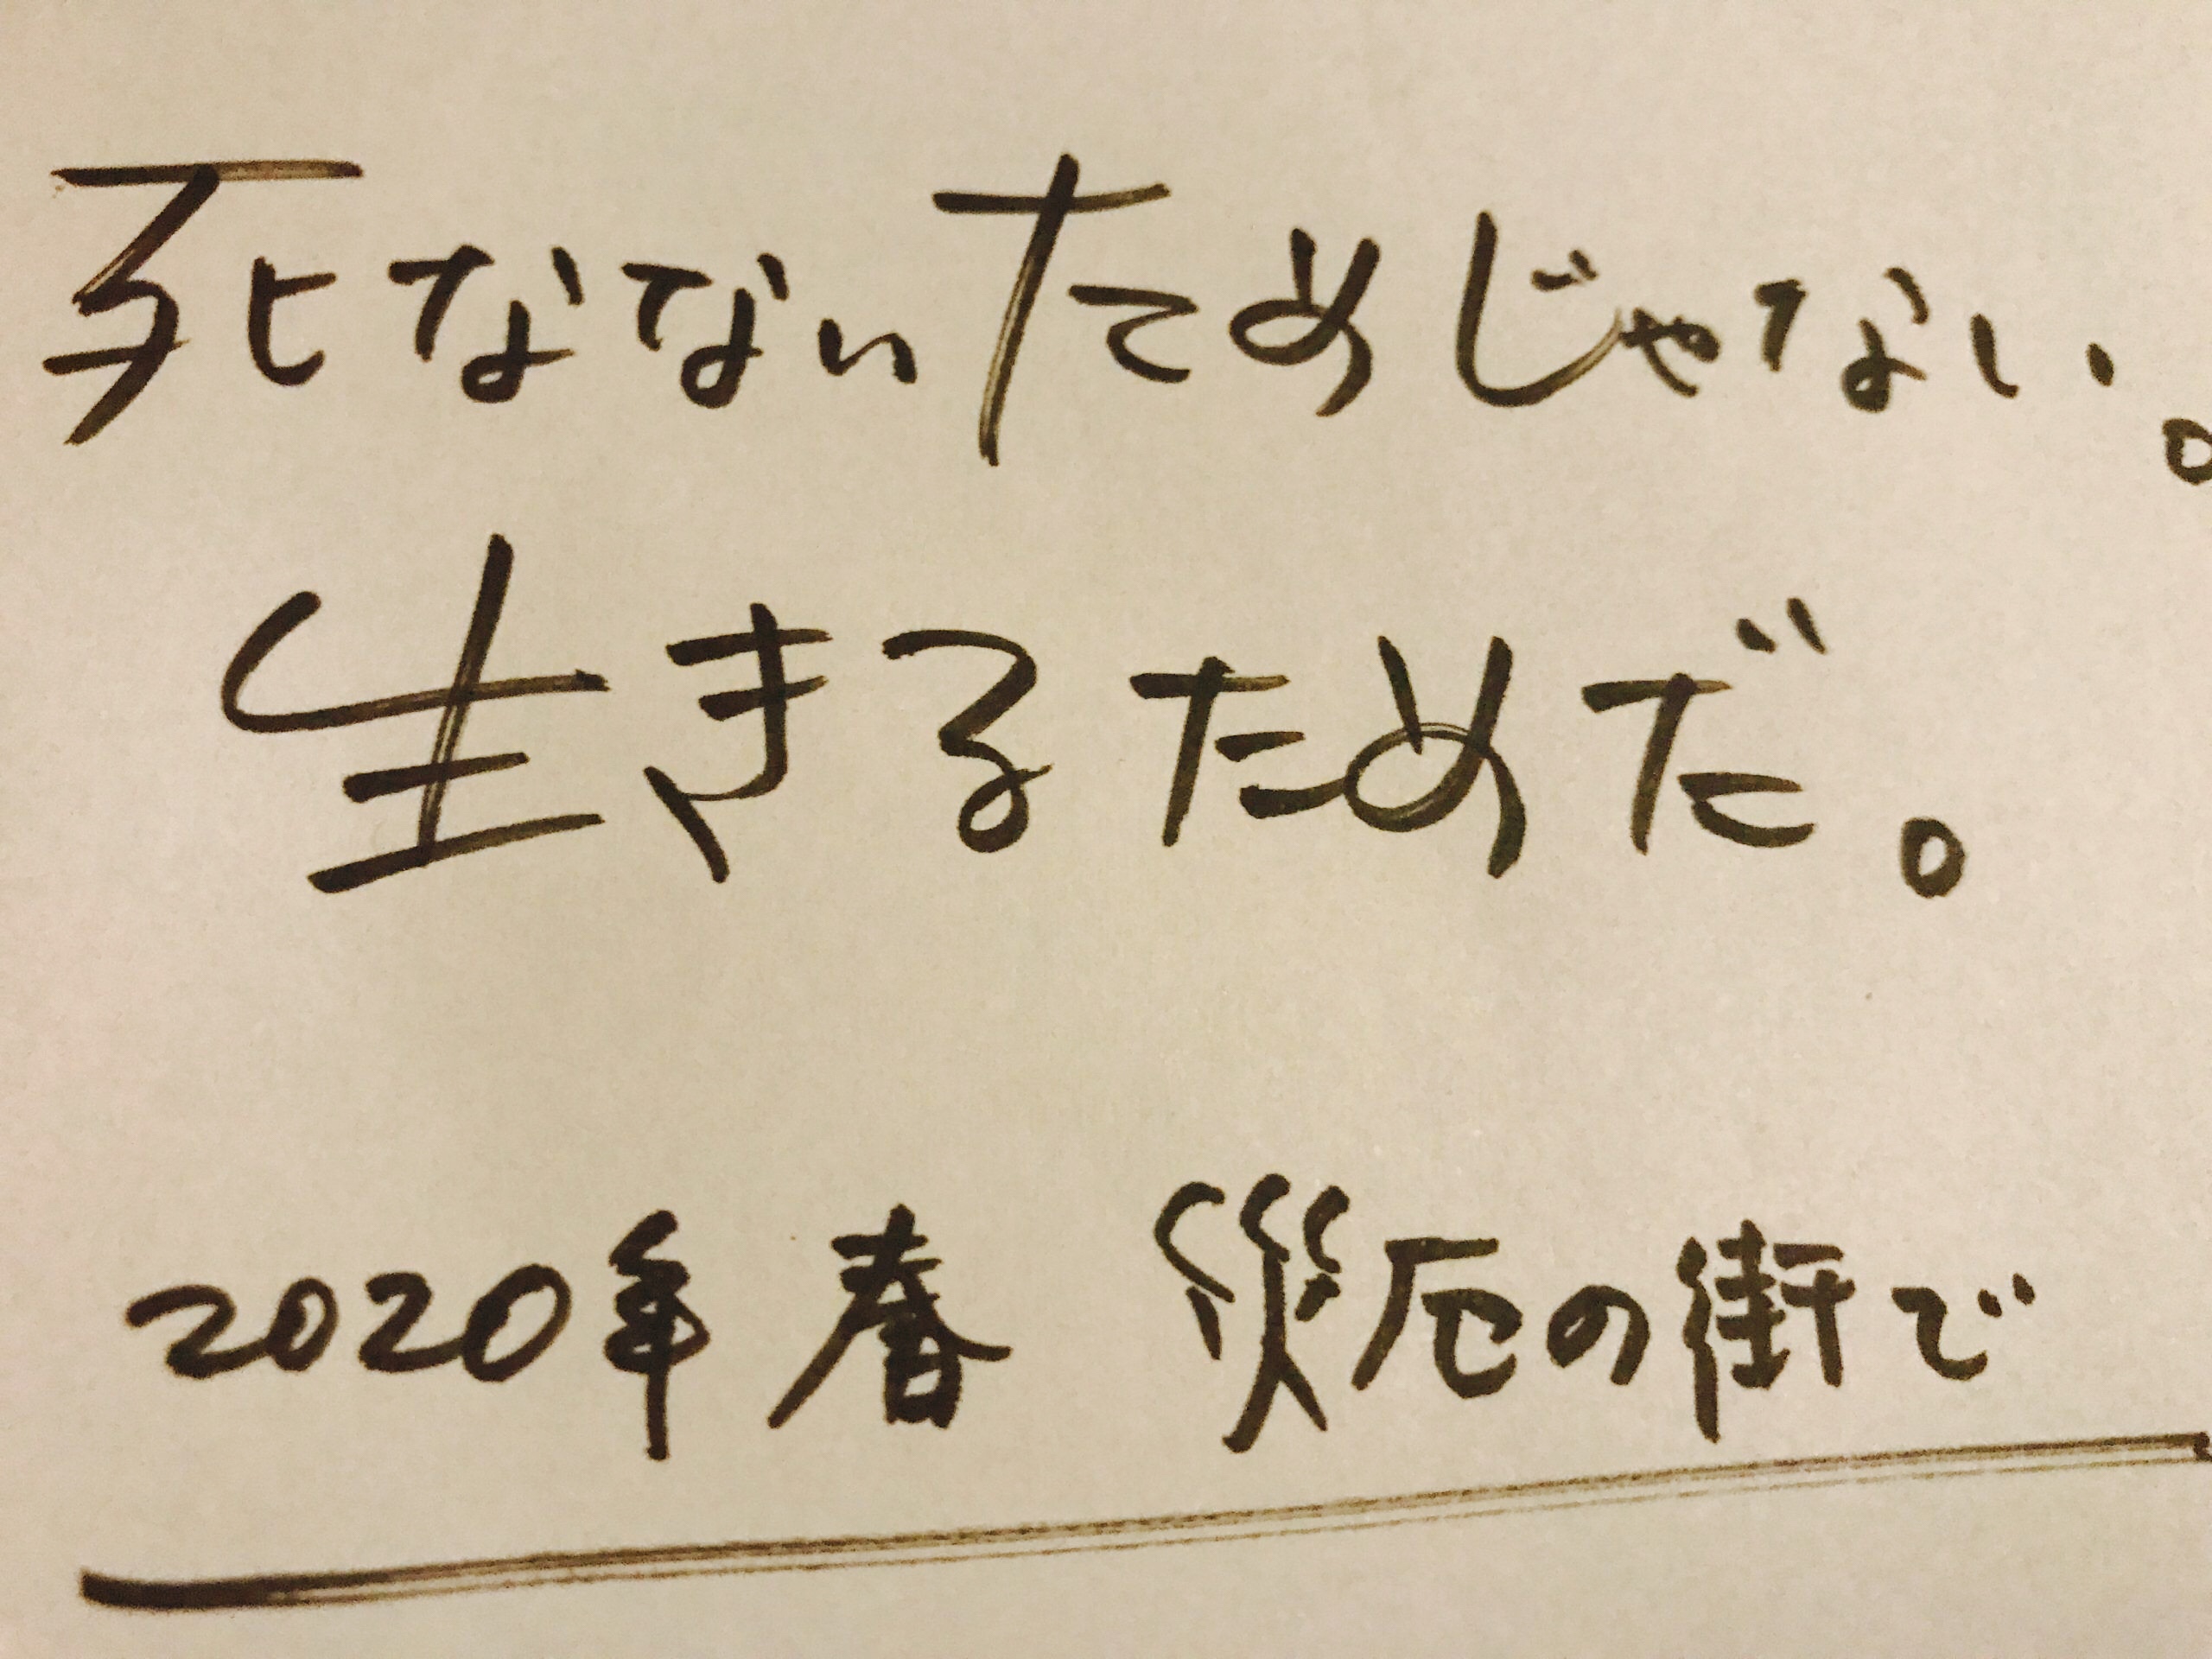 死なないためじゃない。
生きるためだ。
2020年春 災厄の街で